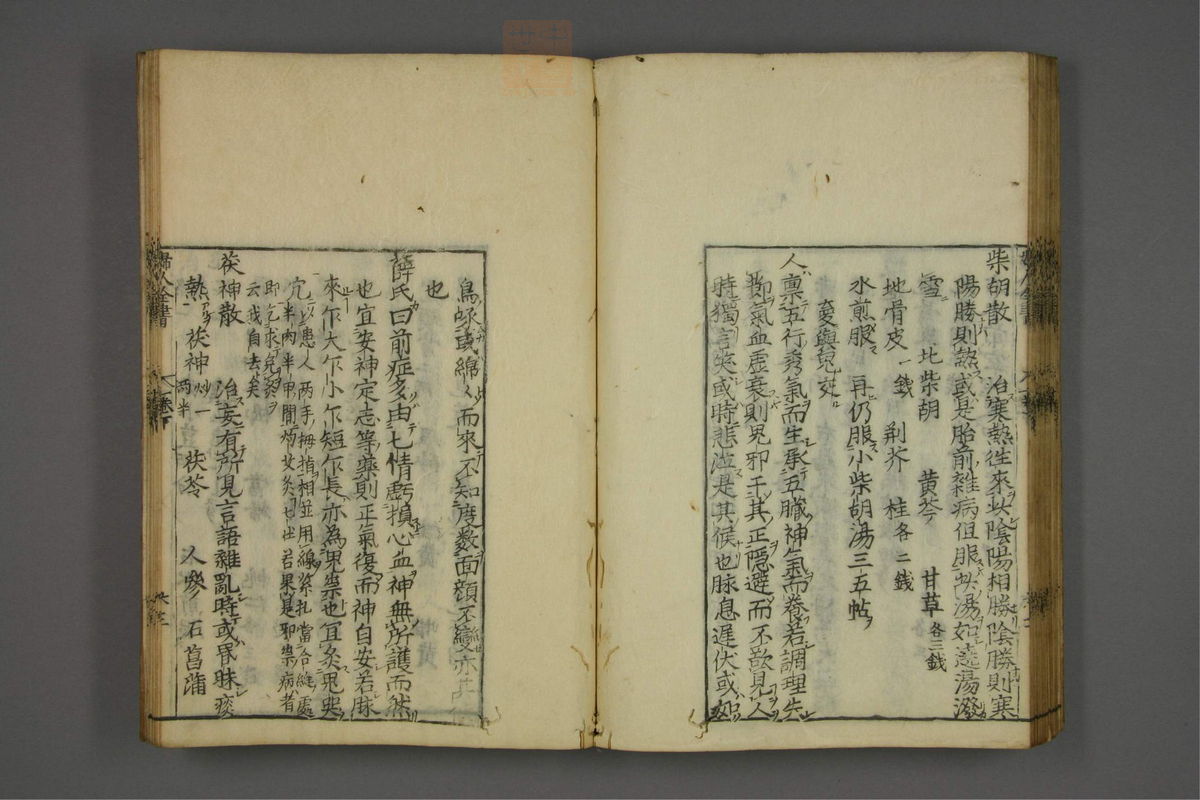 柴胡散　治寒熱往來此陰陽相勝陰勝則寒
陽勝則熱或是胎前雜病但服此湯如澆湯潑
雪　北柴胡　黃芩　甘草各三錢
地骨皮一錢　荆芥　桂各二錢
水煎服　再仍服小柴胡湯三五帖
夢與鬼交
人稟五行秀氣而生承五臟神氣而養若調理失
節氣血虛衰則鬼邪干其正隱避而不欲見人
時獨言笑或時悲泣是其候也脉息遲伏或如
鳥啄或綿々而來不知度數面顏不變亦其
也
薛氏曰前症多由七情虧損心血神無所護而然
也宜安神定志等藥則正氣復而神自安若脉
來乍大乍小乍短乍長亦為鬼祟也宜灸鬼哭
穴以患人兩手拇指相並用線紮扎當合縫處
半肉半甲間灼艾灸七壯若果是邪祟病者
即乞求免灸
云我自去矣
茯神散　治妄有所見言語雜亂時或昏昧痰
熱　茯神炒一兩半　茯苓　人參　石菖蒲